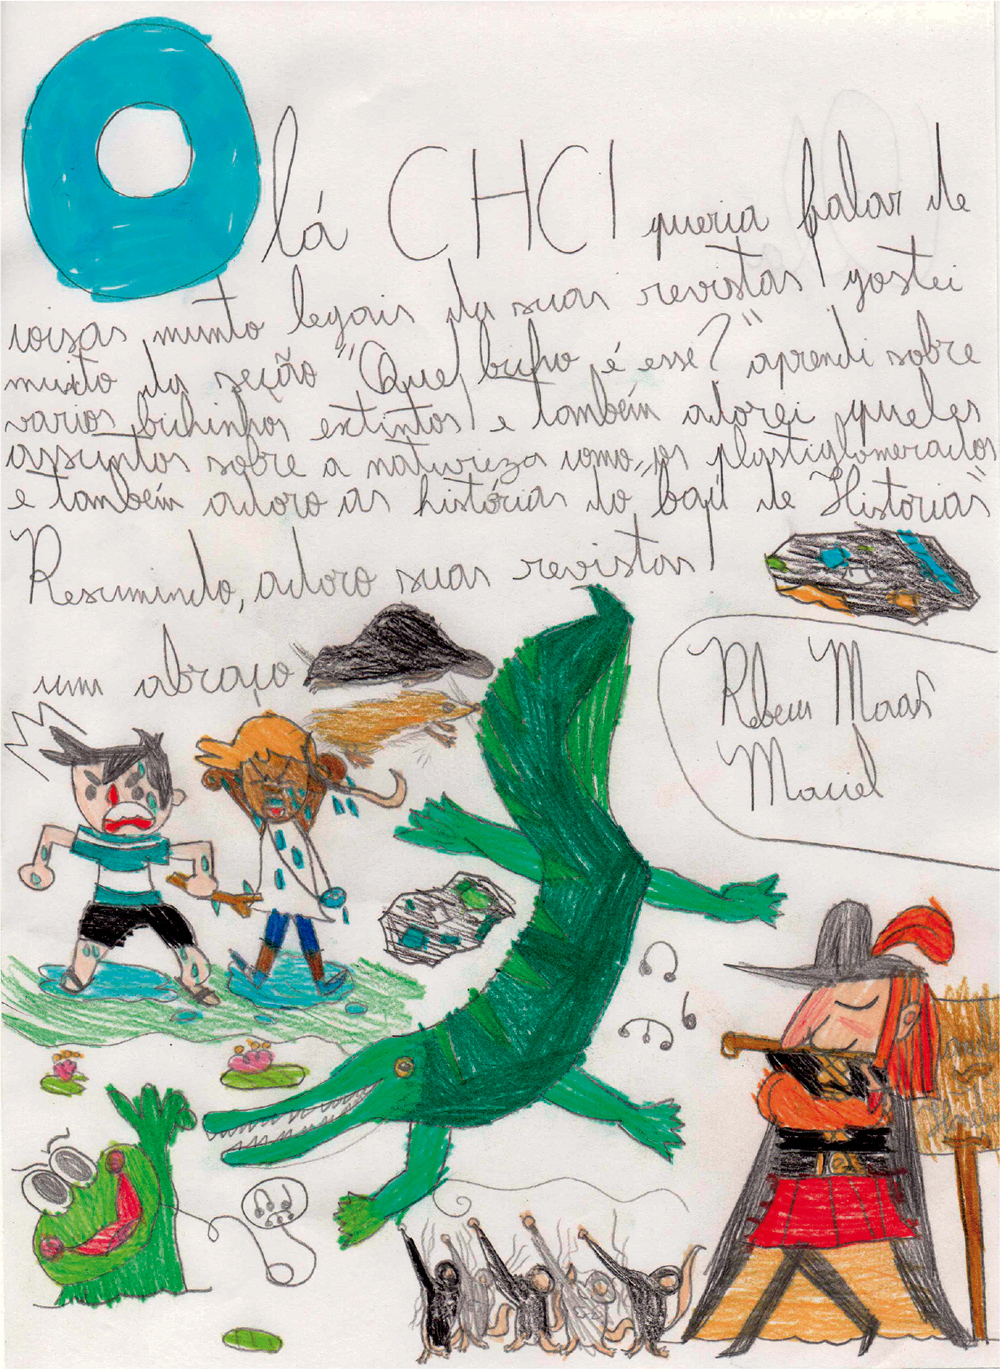 Olá CHC! queria falar de
coisas munto legais da suas revistas! gostei
muito da seção "Que bicho é esse?" aprendi sobre
varios bichinhos extintos! e também adorei queles
assuntos sobre a natureza como, os plastiglomerados
e também adoro as histórias do "baú de Historias"
Resumindo, adoro suas revistas!
um abraço
Maciel